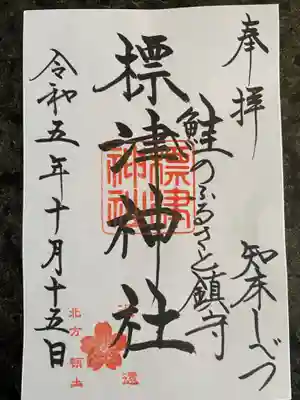 奉拝
知床しべつ
鮭のふるさと鎮守
標津神社
標津神社
令和五年十月十五日
北方領土
返還